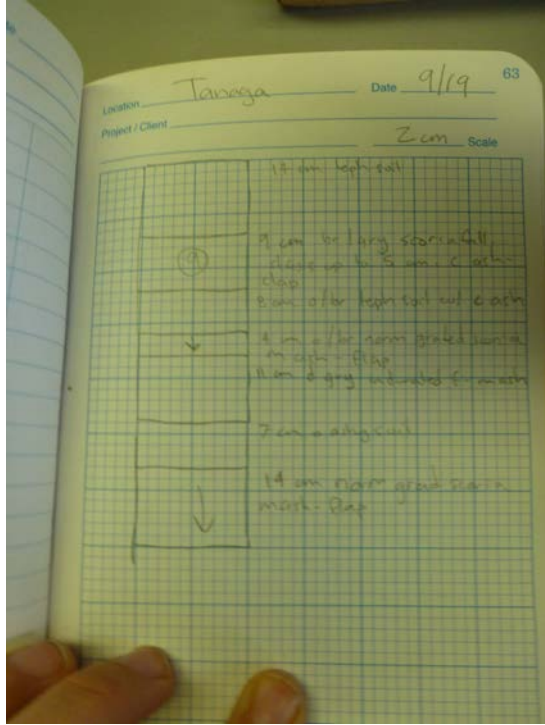 63
Location Tanaga Date 9/19
Project / Client
2 cm Scale
14 cm teph soil
9 cm br / gry scoria fall,
9
clasts up to 5 cm, c ash-
8 cm o/br teph soil w/ c ash
4 cm o/br norm graded scoria
m ash - flap
11 cm d gry indurated f-m ash
7 cm o ashy soil
14 cm norm grad scoria
m ash - flap